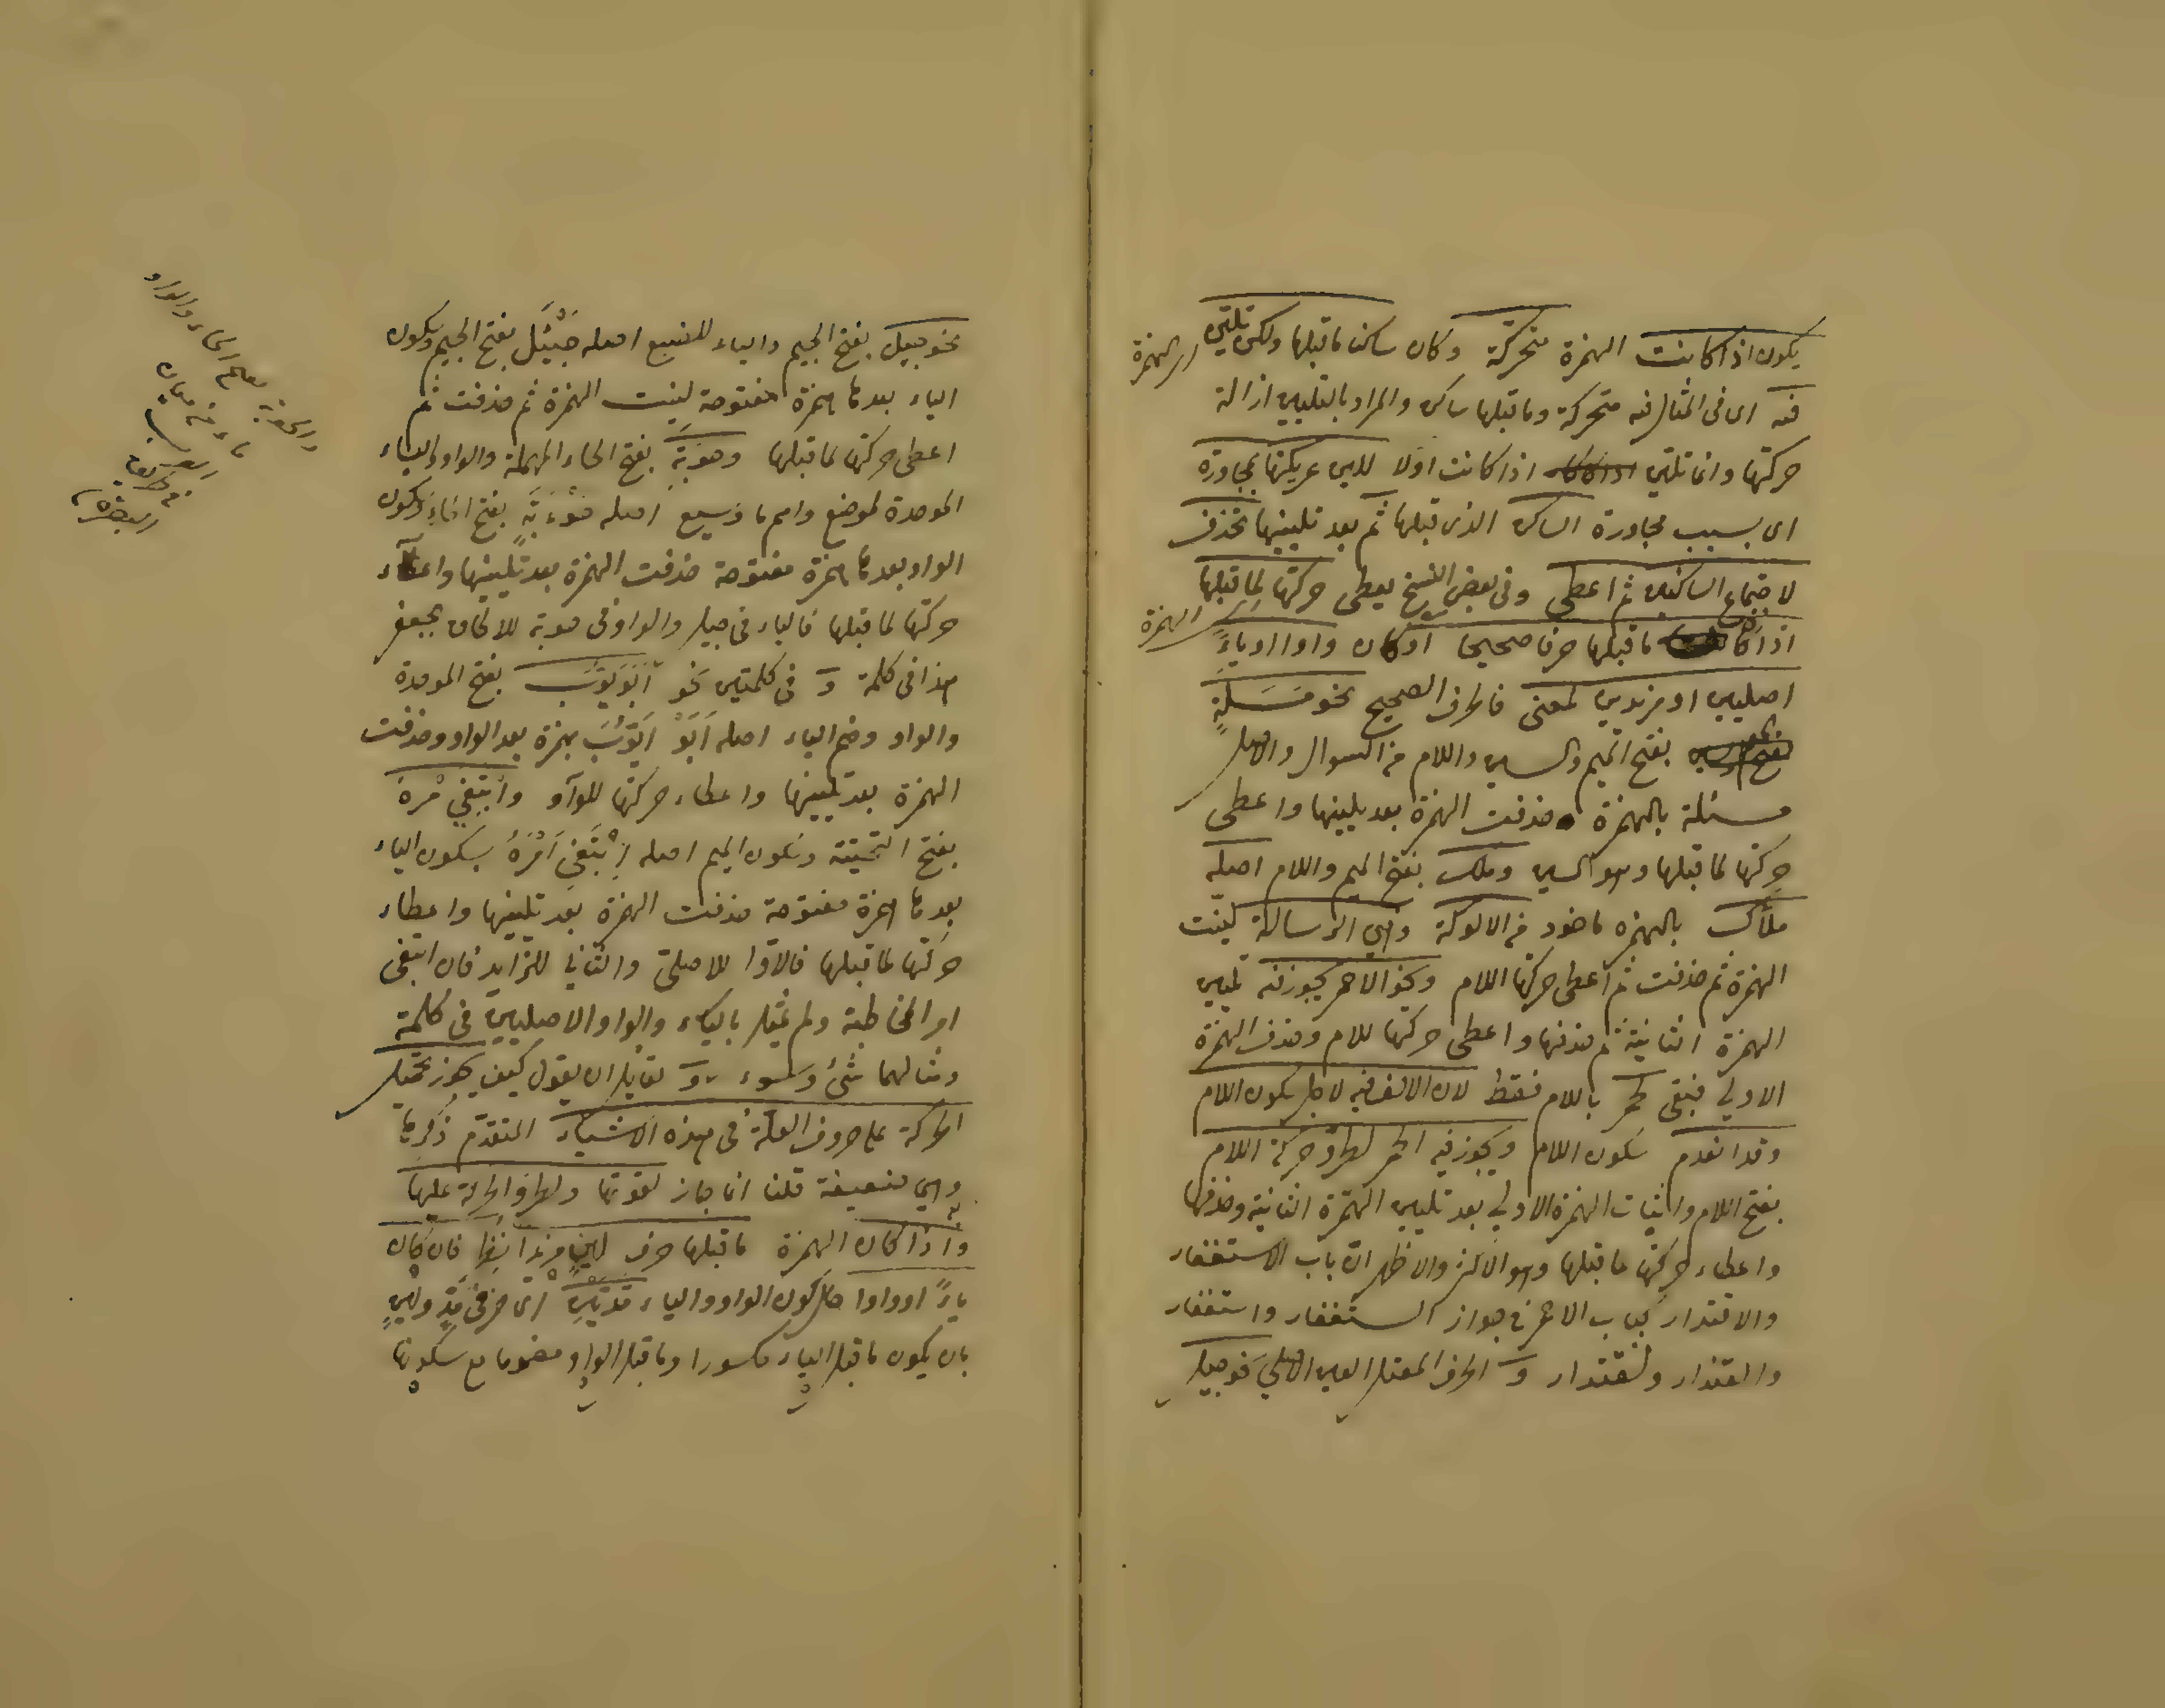 يكون اذا كانت الهمزة متحركة وكان ساكنا ماقبلها ولكن تليّن
اى الهمزة
فيه اى فى المثال فيه متحركة وما قبلها ساكن والمراد بالتليين ازالة
حركتها وانما تلين اذا كانت اولا للين عريكتها بمجاورة
اى بسبب مجاورة الساكن الذى قبلها ثم بعد تليينها تحذف
لاجتماع الساكنين ثم اعطى وفى بعض النسخ يعطى حركتها لما قبلها
اى الهمزة
اذا كان ما قبلها حرفا صحيحا او كان واوا او ياءً
اصليين او مزيدين لمعنى فالحرف الصحيح نحو مَسَلَةٍ
بفتح الميم والسين واللام من السوال والاصل
مسئلة بالهمزة حذفت الهمزة بعد تليينها واعطى
حركتها لما قبلها وهو السين وملك بفتح الميم واللام اصله
ملأك بالهمزه ماخوذ من الالوكة وهي الرسالة لينت
الهمزة ثم حذفت ثم اعطى حركتها اللام ونحو الاحمر يجوز فيه تليين
الهمزة الثانية ثم حذفها واعطى حركتها للام وحذف الهمزة
الاولي فبقى لحمر باللام فقط لان الالف فيه لاجل سكون اللام
وقد انعدم سكون اللام ويجوز فيه الحمر لطرو حركة اللام
بفتح اللام واثبات الهمزة الاولي بعد تليين الهمزة الثانية وحذفها
واعطاء حركتها ما قبلها وهو الاكثر والاظهر ان باب الاستغفار
والاقتدار كباب الاحمر في جواز الستغفار واستغفار
والقتدار ولقتدار و الحرف المعتل العين الاصلي نحو جيل
نحو جيل بفتح الجيم والياء للضبع اصله جَيْئَل بفتح الجيم وسكون
الياء بعدها همزة مفتوحة لينت الهمزة ثم حذفت ثم
اعطى حركتها لما قبلها وحوبة بفتح الحاء المهملة والواو والباء
الموحدة لموضع واسم ما وسيع اصله حَوْءَبَةٍ بفتح الحاء وسكون
الواو بعدها همزة مفتوحة حذفت الهمزة بعد تليينها واعطاء
حركتها لما قبلها فالياء فى جيل والواو فى حوبة للالحاق بجعفر
هذا فى كلمة و فى كلمتين نحو اَبَوَيُّوبَ بفتح الموحدة
والواو وضم الياء اصله اَبَوْ اَيُّوبَ بهمزة بعد الواو وحذفت
الهمزة بعد تليينها واعطاء حركتها للواو وابْتَغِيَ مْرَهُ
بفتح التحتية وسكون الميم اصله اِبْتَغِي اَمْرَهُ بسكون الياء
بعدها همزة مفتوحة حذفت الهمزة بعد تليينها واعطاء
حركتها لما قبلها فالاول للاصلى والثاني للزايد فان ابتغى
امر المخاطبة ولم يمثل بالياء والواو الاصليين فى كلمة
ومثالهما شئ وسوء و لقايل ان يقول كيف يجوز تحمل
الحركة على حروف العلة فى هذه الاشياء المتقدم ذكرها
وهي ضعيفة قلنا انما جاز لقوتها ولطرو الحركة عليها
واذا كان الهمزة ما قبلها حرف لين مزيدا نظر فان كان
ياءً او واوا حال كون الواو والياء مَدّتَيْنِ اى حرفى مدٍ ولينٍ
بان يكون ما قبل الياء مكسورا وما قبل الواو مضموما مع سكونها